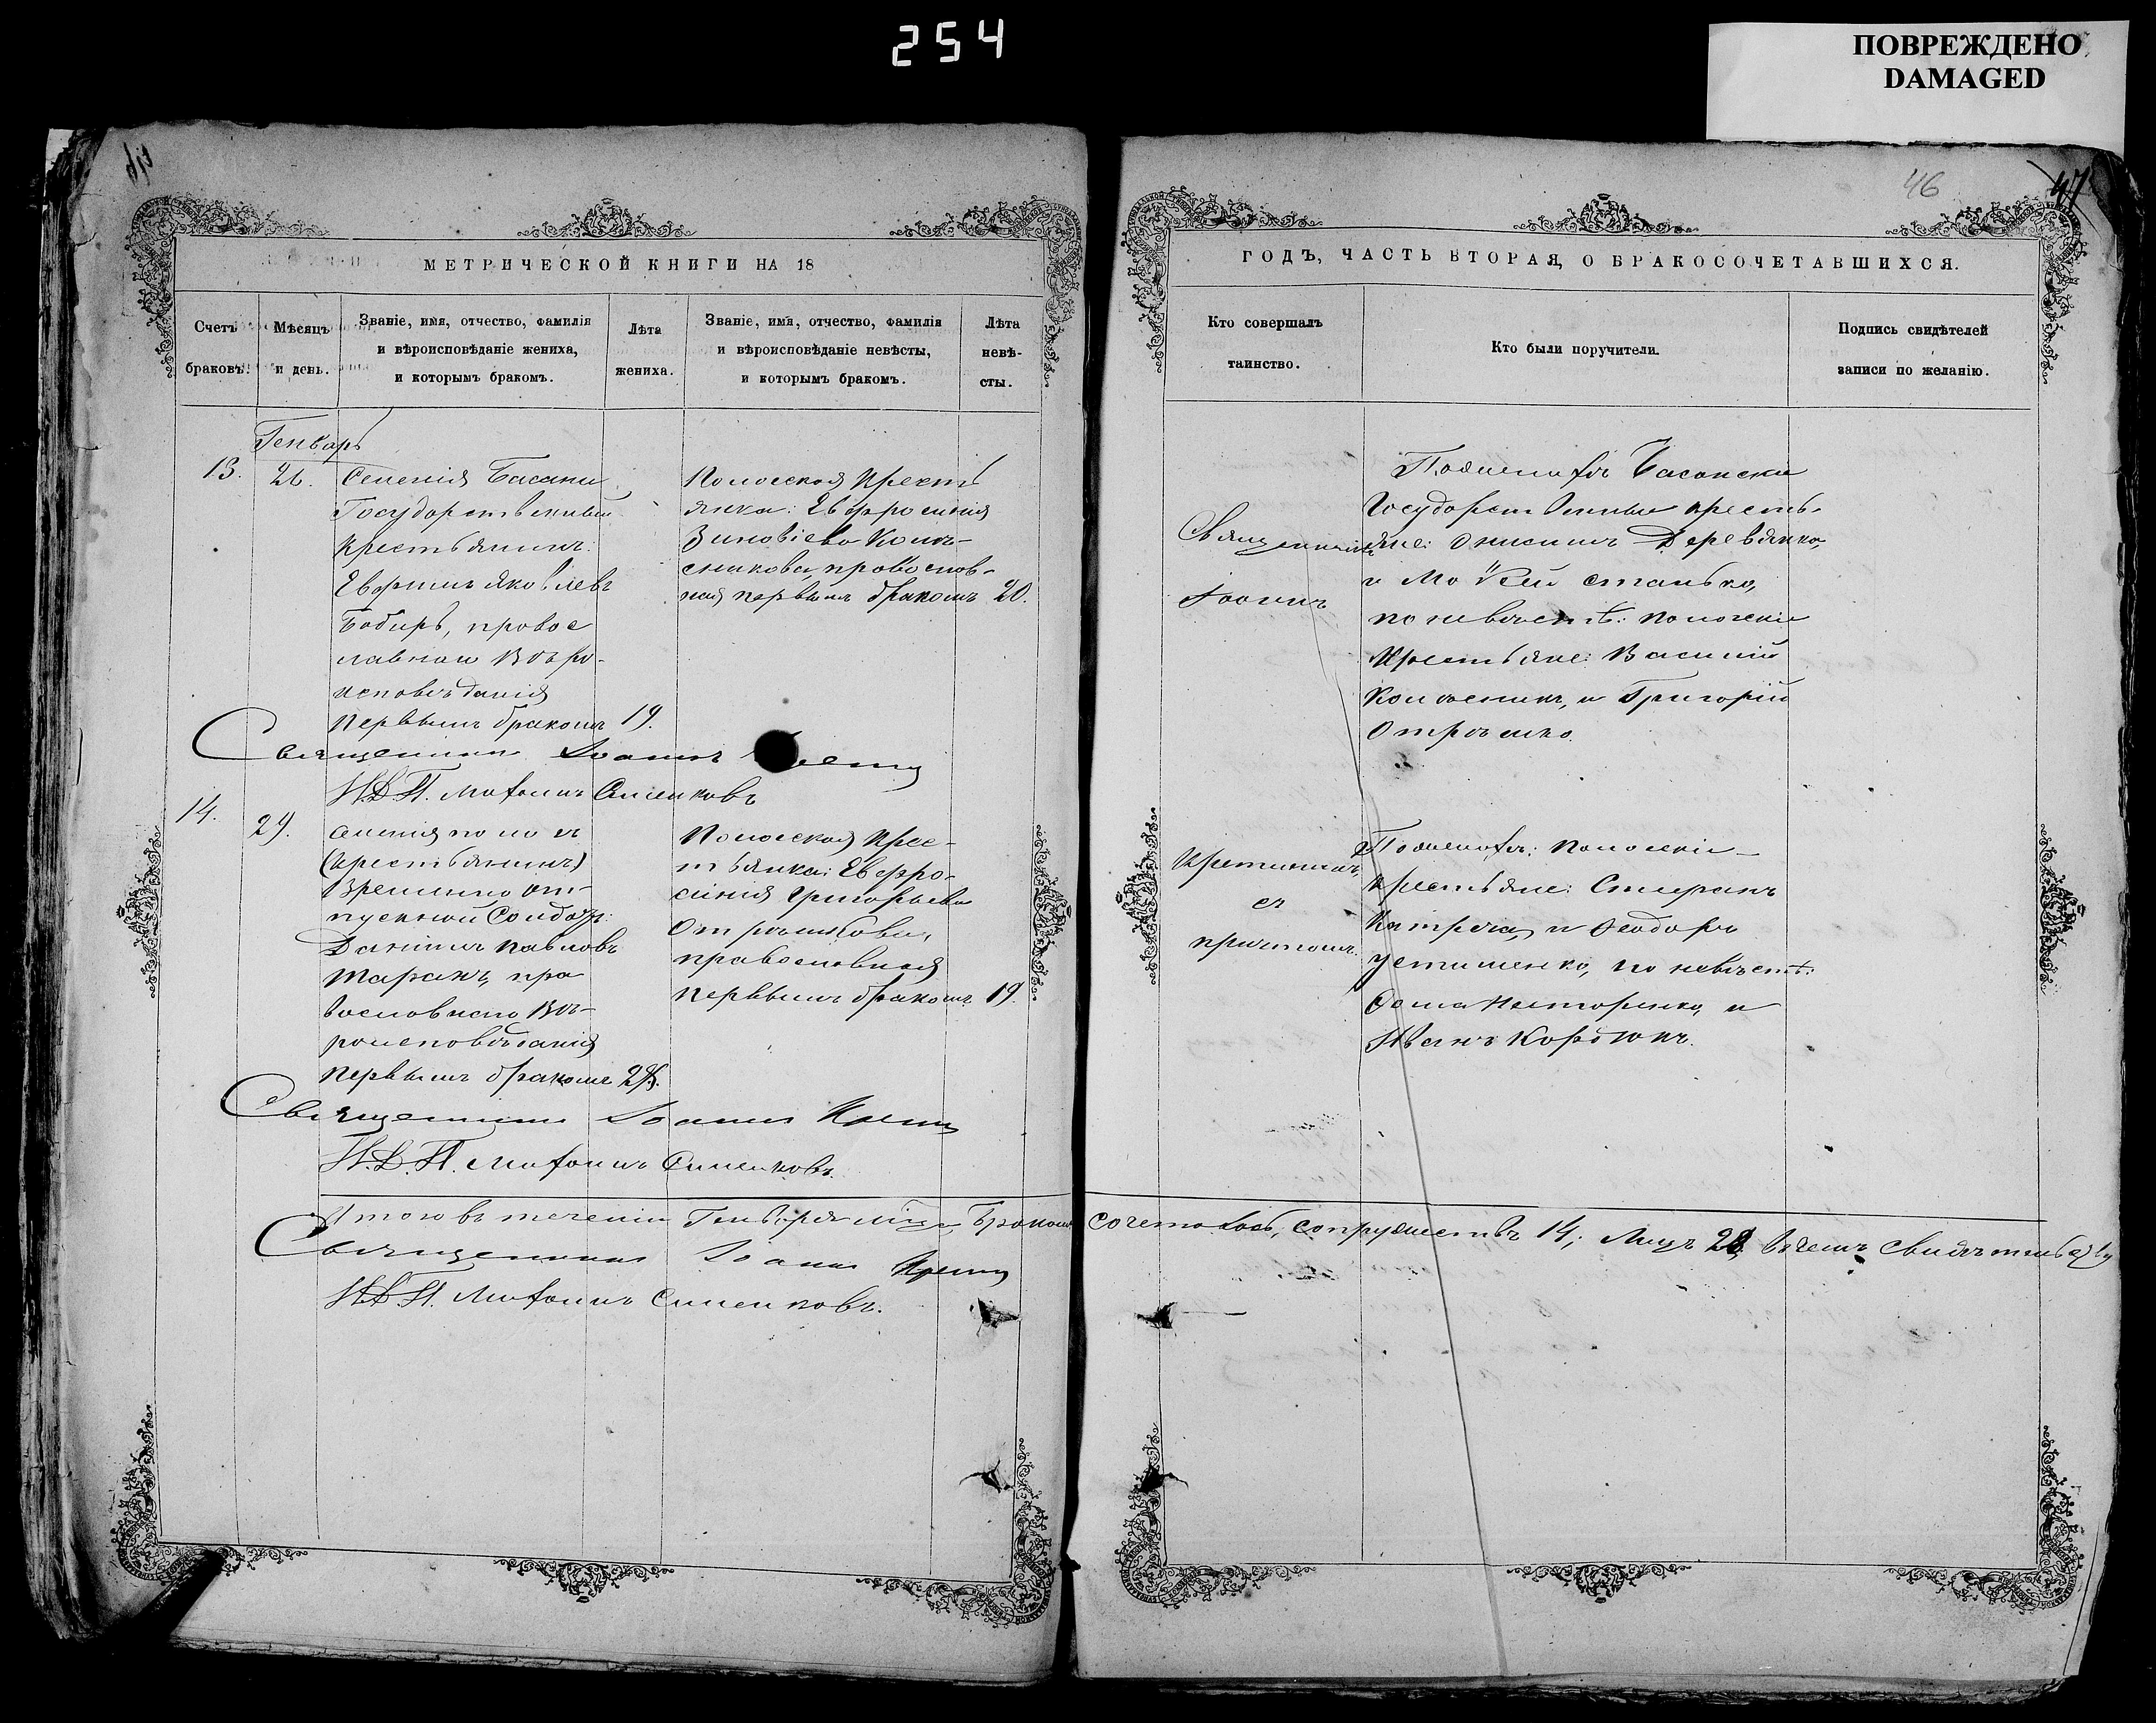 254
ПОВРЕЖДЕНО
DAMAGED
46
47
МЕТРИЧЕСКОЙ КНИГИ НА 18
ГОДЪ, ЧАСТЬ ВТОРАЯ, О БРАКОСОЧЕТАВШИХСЯ.
Счетъ браковъ.
Мѣсяцъ и день.
Званіе, имя, отчество, фамилія
и вѣроисповѣданіе жениха,
и которымъ бракомъ.
Лѣта жениха.
Званіе, имя, отчество, фамилія
и вѣроисповѣданіе невѣсты,
и которымъ бракомъ.
Лѣта невѣ-
сты.
Кто совершалъ
таинство.
Кто были поручители.
Подпись свидѣтелей
записи по желанію.
Генварь
13.
26.
Селенія Басани
Государственный
крестьянинъ:
Евфимъ Яковлевъ
Бобирь, право с
лавнаго Вѣро-
исповѣданія
первымъ бракомъ 19.
крест
янка: Евфросинія
Зиновіева
православ-
ная первымъ бракомъ 20.
Священникъ
Іоаннъ
По женихѣ Басански
Государственные кресть-
яне: Онисимъ Деревянко,
и Мокей Станько,
по невѣстѣ:
крестьяне: Василій
и Григорій
Отрѣшко.
Священникъ Іоаннъ
И.Д.П. Митофанъ Сименковъ
14.
29.
(крестьянинъ)
Временно от-
пускной Солдатъ:
Даніилъ Павловъ
Таранъ, пра
вославнаго Вѣ-
роисповѣданія
первымъ бракомъ 28.
крес-
тьянка: Евфро-
синія Григорьева
Отрѣшкова,
православная
первымъ бракомъ 19.
съ
причтомъ.
По женихѣ:
крестьяне: Стефанъ
и Феодоръ
Устименко, по невѣстѣ:
Фома Нестеренко, и
Иванъ Коробокъ.
Священникъ Іоаннъ
И.Д.П. Митофанъ Сименковъ.
Итого въ теченіи Генваря мѣся Бракомъ сочеталось, супружествъ 14, лицъ 28, въ чемъ свидѣтельству
Священникъ Іоаннъ
И.Д.П. Митофанъ Сименковъ.